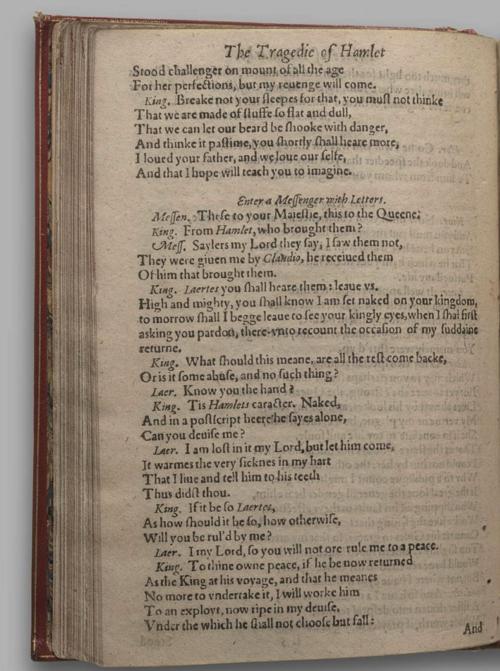 The Tragedie of Hamlet
Stood challenger on mount of all the age
For her perfections, but my reuenge will come.
King. Breake not your sleepes for that, you must not thinke
That we are made of stuffe so flat and dull,
That we can let our beard be shooke with danger,
And thinke it pastime, you shortly shall heare more,
I loued your father, and we loue our selfe,
And that I hope will teach you to imagine.
Enter a Messenger with Letters.
Messen. These to your Maiestie, this to the Queene.
King. From Hamlet, who brought them?
Mess. Saylers my Lord they say, I saw them not,
They were giuen me by Claudio, he receiued them
Of him that brought them.
King. Laertes you shall heare them: leaue vs.
High and mighty, you shall know I am set naked on your kingdom,
to morrow shall I begge leaue to see your kingly eyes, when I shal first
asking you pardon, there-vnto recount the occasion of my suddaine
returne.
King. What should this meane, are all the rest come backe,
Or is it some abuse, and no such thing?
Laer. Know you the hand?
King. Tis Hamlets caracter. Naked,
And in a postscript heere he sayes alone,
Can you deuise me?
Laer. I am lost in it my Lord, but let him come,
It warmes the very sicknes in my hart
That I liue and tell him to his teeth
Thus didst thou.
King. If it be so Laertes,
As how should it be so, how otherwise,
Will you be rul'd by me?
Laer. I my Lord, so you will not ore rule me to a peace.
King. To thine owne peace, if he be now returned
As the King at his voyage, and that he meanes
No more to vndertake it, I will worke him
To an exployt, now ripe in my deuise,
Vnder the which he shall not choose but fall:
And